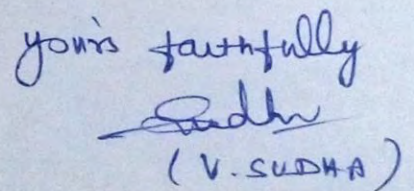 your's faithfully
Sudha
(V. SUDHA)